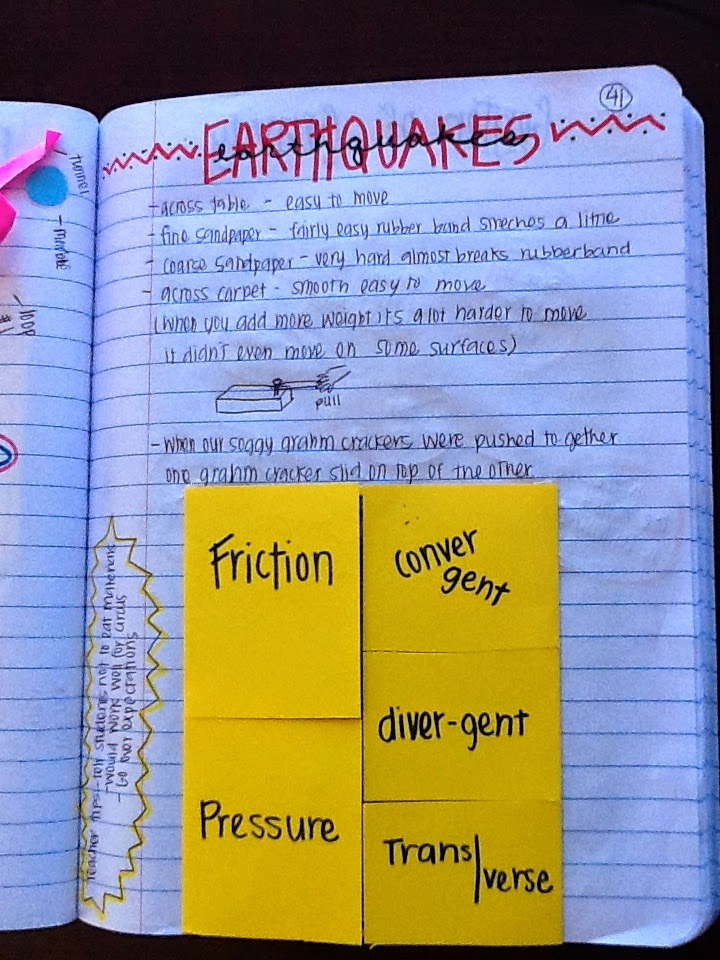 41
EARTHQUAKES
earthquakes
- across table - easy to move
- fine sandpaper - fairly easy rubber band streches a little
- coarse sandpaper - very hard almost breaks rubberband
- across carpet - smooth easy to move
(when you add more weight its a lot harder to move
it didn't even move on some surfaces)
pull
- When our soggy grahm crackers were pushed to gether
one grahm cracker slid on top of the other
Friction
conver
gent
diver-gent
Pressure
Trans/
verse
Teacher tips - tell students not to eat materials
- would work well for circus
- Go over expectations
tunnel
- marble
loop